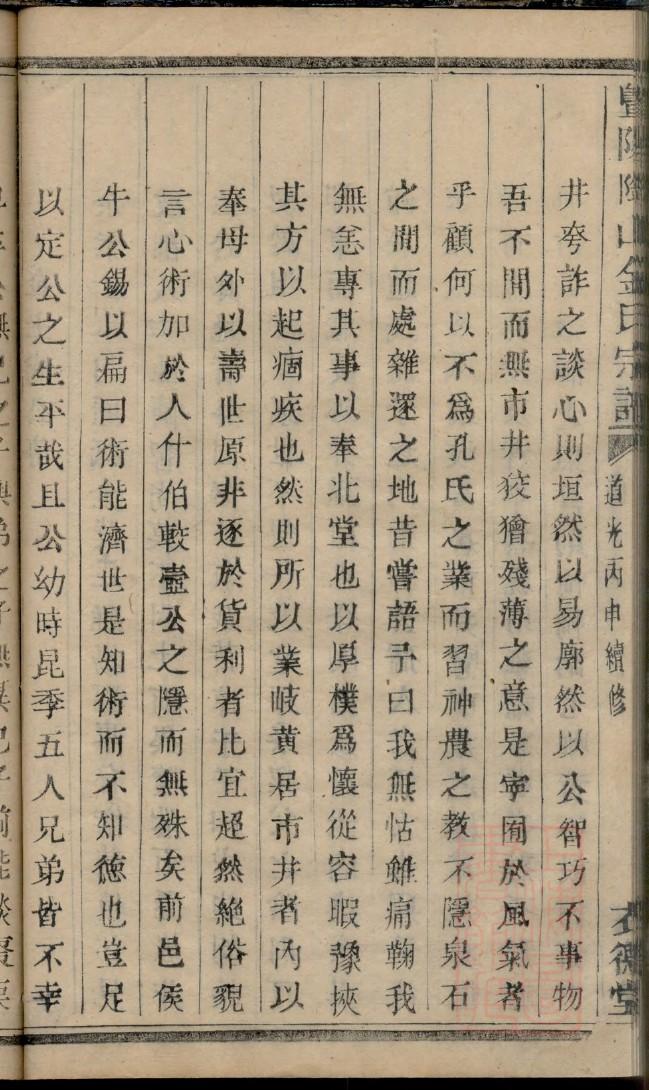 暨陽隂山金氏宗譜 道光丙申續修 衣德堂
井夸詐之談心則垣然以易廓然以公智巧不事物
吾不間而無市井狡獪殘薄之意是寧囿於風氣者
乎顧何以不爲孔氏之業而習神農之教不隱泉石
之間而處雜遝之地昔嘗語予曰我無怙雖痛鞠我
無恙專其事以奉北堂也以厚樸爲懷從容暇豫挾
其方以起痼疾也然則所以業岐黃居市井者內以
奉母外以壽世原非逐於貨利者比宜超然絶俗貌
言心術加於人什伯較壺公之隱而無殊矣前邑侯
牛公錫以扁曰術能濟世是知術而不知德也豈足
以定公之生平哉且公幼時昆季五人兄弟皆不幸